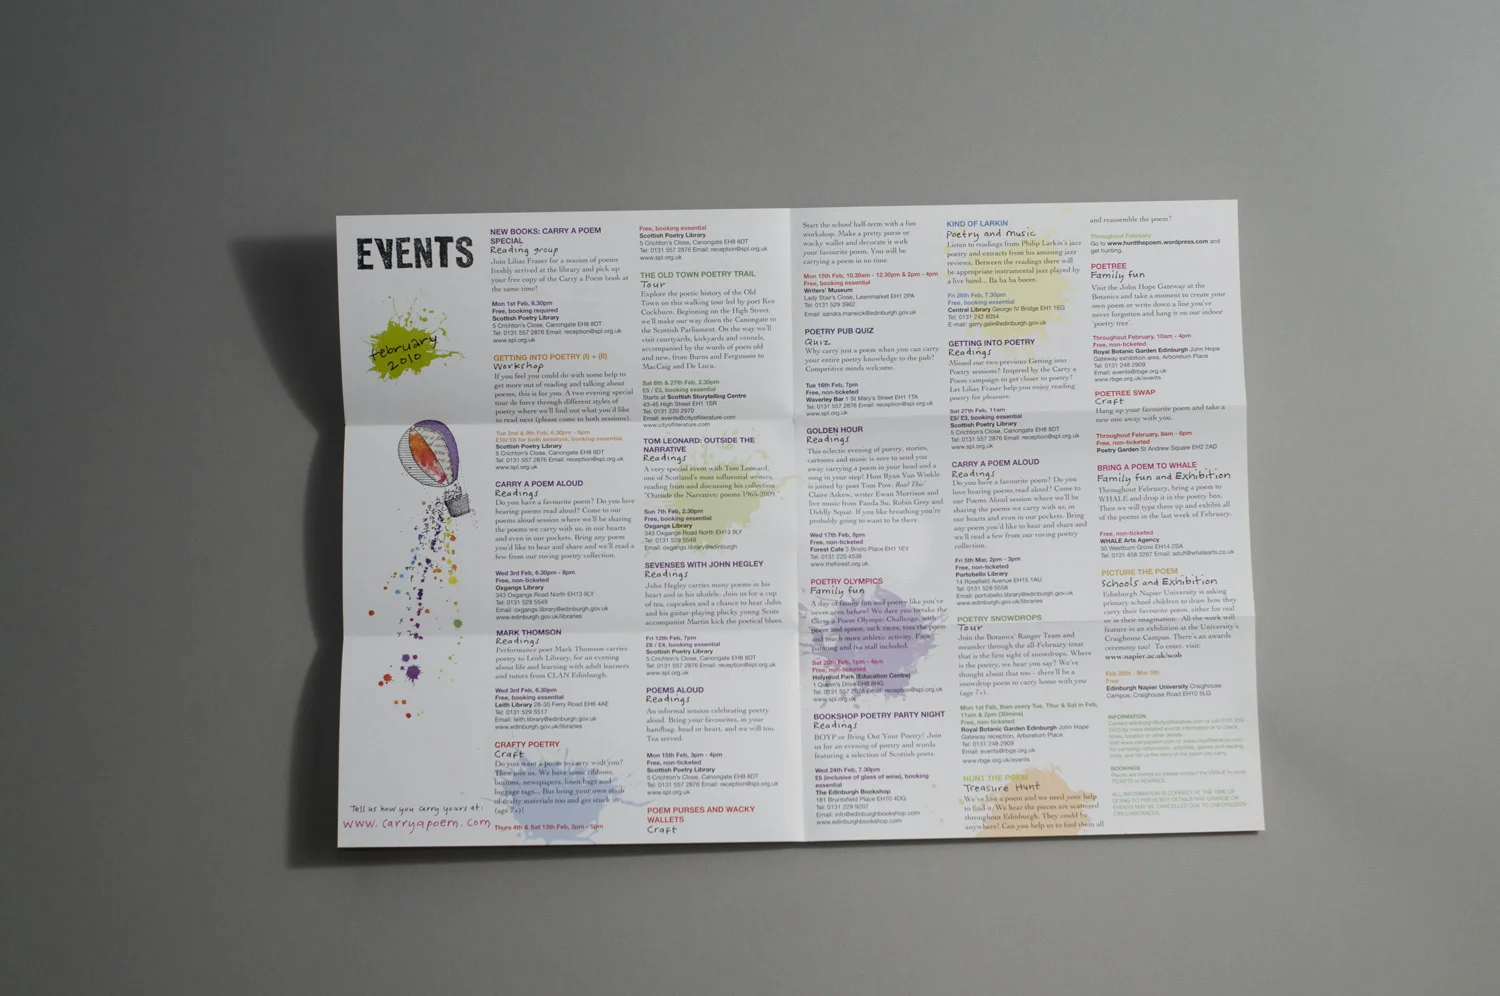 EVENTS
february
2010
Tell us how you carry yours at:
www.carryapoem.com
NEW BOOKS: CARRY A POEM
SPECIAL
Reading group
Join Lilias Fraser for a session of poems
freshly arrived at the library and pick up
your free copy of the Carry a Poem book at
the same time!
Mon 1st Feb, 6.30pm
Free, booking required
Scottish Poetry Library
5 Crichton's Close, Canongate EH8 8DT
Tel: 0131 557 2876 Email: reception@spl.org.uk
www.spl.org.uk
GETTING INTO POETRY (I) + (II)
Workshop
If you feel you could do with some help to
get more out of reading and talking about
poems, this is for you. A two evening special
tour de force through different styles of
poetry where we'll find out what you'd like
to read next (please come to both sessions).
Tue 2nd & 9th Feb, 6.30pm - 8pm
£10/ £8 for both sessions, booking essential
Scottish Poetry Library
5 Crichton's Close, Canongate EH8 8DT
Tel: 0131 557 2876 Email: reception@spl.org.uk
www.spl.org.uk
CARRY A POEM ALOUD
Readings
Do you have a favourite poem? Do you love
hearing poems read aloud? Come to our
poems aloud session where we'll be sharing
the poems we carry with us, in our hearts
and even in our pockets. Bring any poem
you'd like to hear and share and we'll read a
few from our roving poetry collection.
Wed 3rd Feb, 6.30pm - 8pm
Free, non-ticketed
Oxgangs Library
343 Oxgangs Road North EH13 9LY
Tel: 0131 529 5549
Email: oxgangs.library@edinburgh.gov.uk
www.edinburgh.gov.uk/libraries
MARK THOMSON
Readings
Performance poet Mark Thomson carries
poetry to Leith Library, for an evening
about life and learning with adult learners
and tutors from CLAN Edinburgh.
Wed 3rd Feb, 6.30pm
Free, booking essential
Leith Library 28-30 Ferry Road EH6 4AE
Tel: 0131 529 5517
Email: leith.library@edinburgh.gov.uk
www.edinburgh.gov.uk/libraries
CRAFTY POETRY
Craft
Do you want a poem to carry with you?
Then join us. We have some ribbons,
buttons, newspapers, linen bags and
luggage tags... But bring your own stash
of crafty materials too and get stuck in
(age 7+)!
Thurs 4th & Sat 13th Feb, 3pm - 5pm
Free, booking essential
Scottish Poetry Library
5 Crichton's Close, Canongate EH8 8DT
Tel: 0131 557 2876 Email: reception@spl.org.uk
www.spl.org.uk
THE OLD TOWN POETRY TRAIL
Tour
Explore the poetic history of the Old
Town on this walking tour led by poet Ken
Cockburn. Beginning on the High Street,
we'll make our way down the Canongate to
the Scottish Parliament. On the way we'll
visit courtyards, kirkyards and vennels,
accompanied by the words of poets old
and new, from Burns and Fergusson to
MacCaig and De Luca.
Sat 6th & 27th Feb, 2.30pm
£5 / £3, booking essential
Starts at Scottish Storytelling Centre
43-45 High Street EH1 1SR
Tel: 0131 220 2970
Email: events@cityofliterature.com
www.cityofliterature.com
TOM LEONARD: OUTSIDE THE
NARRATIVE
Readings
A very special event with Tom Leonard,
one of Scotland's most influential writers,
reading from and discussing his collection
'Outside the Narrative: poems 1965-2009.'
Sun 7th Feb, 2.30pm
Free, booking essential
Oxgangs Library
343 Oxgangs Road North EH13 9LY
Tel: 0131 529 5549
Email: oxgangs.library@edinburgh
SEVENSES WITH JOHN HEGLEY
Readings
John Hegley carries many poems in his
heart and in his ukulele. Join us for a cup
of tea, cupcakes and a chance to hear John
and his guitar-playing plucky young Scots
accompanist Martin kick the poetical blues.
Fri 12th Feb, 7pm
£6 / £4, booking essential
Scottish Poetry Library
5 Crichton's Close, Canongate EH8 8DT
Tel: 0131 557 2876 Email: reception@spl.org.uk
www.spl.org.uk
POEMS ALOUD
Readings
An informal session celebrating poetry
aloud. Bring your favourites, in your
handbag, head or heart, and we will too.
Tea served.
Mon 15th Feb, 3pm - 4pm
Free, non-ticketed
Scottish Poetry Library
5 Crichton's Close, Canongate EH8 8DT
Tel: 0131 557 2876 Email: reception@spl.org.uk
www.spl.org.uk
POEM PURSES AND WACKY
WALLETS
Craft
Start the school half-term with a fun
workshop. Make a pretty purse or
wacky wallet and decorate it with
your favourite poem. You will be
carrying a poem in no time.
Mon 15th Feb, 10.30am - 12.30pm & 2pm - 4pm
Free, booking essential
Writers' Museum
Lady Stair's Close, Lawnmarket EH1 2PA
Tel: 0131 529 3962
Email: sandra.marwick@edinburgh.gov.uk
POETRY PUB QUIZ
Quiz
Why carry just a poem when you can carry
your entire poetry knowledge to the pub?
Competitive minds welcome.
Tue 16th Feb, 7pm
Free, non-ticketed
Waverley Bar 1 St Mary's Street EH1 1TA
Tel: 0131 557 2876 Email: reception@spl.org.uk
www.spl.org.uk
GOLDEN HOUR
Readings
This eclectic evening of poetry, stories,
cartoons and music is sure to send you
away carrying a poem in your head and a
song in your step! Host Ryan Van Winkle
is joined by poet Tom Pow, Read This'
Claire Askew, writer Ewan Morrison and
live music from Panda Su, Robin Grey and
Diddly Squat. If you like breathing you're
probably going to want to be there.
Wed 17th Feb, 8pm
Free, non-ticketed
Forest Cafe 3 Bristo Place EH1 1EY
Tel: 0131 220 4538
www.theforest.org.uk
POETRY OLYMPICS
Family fun
A day of family fun and poetry like you've
never seen before! We dare you to take the
Carry a Poem Olympic Challenge, with
poem and spoon, sack races, toss the poem
and much more athletic activity. Face
painting and tea stall included.
Sat 20th Feb, 1pm - 4pm
Free, non-ticketed
Holyrood Park (Education Centre)
1 Queen's Drive EH8 8HG
Tel: 0131 557 2876 Email: reception@spl.org.uk
www.spl.org.uk
BOOKSHOP POETRY PARTY NIGHT
Readings
BOYP or Bring Out Your Poetry! Join
us for an evening of poetry and words
featuring a selection of Scottish poets.
Wed 24th Feb, 7.30pm
£5 (inclusive of glass of wine), booking
essential
The Edinburgh Bookshop
181 Bruntsfield Place EH10 4DG
Tel: 0131 229 9207
Email: info@edinburghbookshop.com
www.edinburghbookshop.com
KIND OF LARKIN
Poetry and music
Listen to readings from Philip Larkin's jazz
poetry and extracts from his amusing jazz
reviews. Between the readings there will
be appropriate instrumental jazz played by
a live band... Ba ba ba boom.
Fri 26th Feb, 7.30pm
Free, booking essential
Central Library George IV Bridge EH1 1EG
Tel: 0131 242 8054
E-mail: garry.gale@edinburgh.gov.uk
GETTING INTO POETRY
Readings
Missed our two previous Getting into
Poetry sessions? Inspired by the Carry a
Poem campaign to get closer to poetry?
Let Lilias Fraser help you enjoy reading
poetry for pleasure.
Sat 27th Feb, 11am
£5/ £3, booking essential
Scottish Poetry Library
5 Crichton's Close, Canongate EH8 8DT
Tel: 0131 557 2876 Email: reception@spl.org.uk
www.spl.org.uk
CARRY A POEM ALOUD
Readings
Do you have a favourite poem? Do you love
hearing poems read aloud? Come to
our Poems Aloud session where we'll be
sharing the poems we carry with us, in
our hearts and even in our pockets. Bring
any poem you'd like to hear and share and
we'll read a few from our roving poetry
collection.
Fri 5th Mar, 2pm - 3pm
Free, non-ticketed
Portobello Library
14 Rosefield Avenue EH15 1AU
Tel: 0131 529 5558
Email: portobello.library@edinburgh.gov.uk
www.edinburgh.gov.uk/libraries
POETRY SNOWDROPS
Tour
Join the Botanics' Ranger Team and
meander through the all-February treat
that is the first sight of snowdrops. Where
is the poetry, we hear you say? We've
thought about that too - there'll be a
snowdrop poem to carry home with you
(age 7+).
Mon 1st Feb, then every Tue, Thur & Sat in Feb,
11am & 2pm (30mins)
Free, non-ticketed
Royal Botanic Garden Edinburgh John Hope
Gateway reception, Arboretum Place
Tel: 0131 248 2909
Email: events@rbge.org.uk
www.rbge.org.uk/events
HUNT THE POEM
Treasure Hunt
We've lost a poem and we need your help
to find it. We hear the pieces are scattered
throughout Edinburgh. They could be
anywhere! Can you help us to find them all
and reassemble the poem?
Throughout February
Go to www.huntthepoem.wordpress.com and
get hunting.
POETREE
Family fun
Visit the John Hope Gateway at the
Botanics and take a moment to create your
own poem or write down a line you've
never forgotten and hang it on our indoor
'poetry tree'.
Throughout February, 10am - 4pm
Free, non-ticketed
Royal Botanic Garden Edinburgh John Hope
Gateway exhibition area, Arboretum Place
Tel: 0131 248 2909
Email: events@rbge.org.uk
www.rbge.org.uk/events
POETREE SWAP
Craft
Hang up your favourite poem and take a
new one away with you.
Throughout February, 8am - 6pm
Free, non-ticketed
Poetry Garden St Andrew Square EH2 2AD
BRING A POEM TO WHALE
Family fun and Exhibition
Throughout February, bring a poem to
WHALE and drop it in the poetry box.
Then we will type them up and exhibit all
of the poems in the last week of February.
Free, non-ticketed
WHALE Arts Agency
30 Westburn Grove EH14 2SA
Tel: 0131 458 3267 Email: astuh@whalearts.co.uk
PICTURE THE POEM
Schools and Exhibition
Edinburgh Napier University is asking
primary-school children to draw how they
carry their favourite poem, either for real
or in their imagination. All the work will
feature in an exhibition at the University's
Craighouse Campus. There's an awards
ceremony too! To enter, visit:
www.napier.ac.uk/wob
Feb 26th - Mar 5th
Free
Edinburgh Napier University Craighouse
Campus, Craighouse Road EH10 5LG.
INFORMATION
BOOKINGS
Places are limited so please contact the VENUE to avoid
TICKETS IN ADVANCE.
ALL INFORMATION IS CORRECT AT THE TIME OF
GOING TO PRESS BUT DETAILS MAY CHANGE OR
EVENTS MAY BE CANCELLED DUE TO UNFORESEEN
CIRCUMSTANCES.